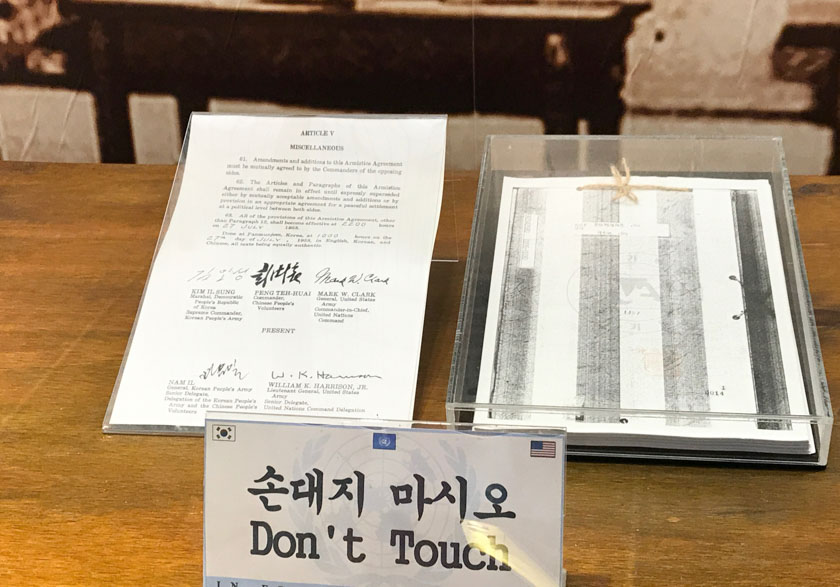 ARTICLE V
MISCELLANEOUS
61. Amendments and additions to this Armistice Agreement
must be mutually agreed to by the Commanders of the opposing
sides.
62. The Articles and Paragraphs of this Armistice
Agreement shall remain in effect until expressly superseded
either by mutually acceptable amendments and additions or by
provision in an appropriate agreement for a peaceful settlement
at a political level between both sides.
63. All of the provisions of this Armistice Agreement, other
than Paragraph 12, shall become effective at 2200 hours
on 27 JULY 1953.
Done at Panmunjom, Korea, at 1000 hours on the
27th day of JULY, 1953, in English, Korean, and
Chinese, all texts being equally authentic.
김일성 彭德懷 Mark W. Clark
KIM IL SUNG PENG TEH-HUAI MARK W. CLARK
Marshal, Democratic Commander, General, United States
People's Republic Chinese People's Army
of Korea Volunteers Commander-in-Chief,
Supreme Commander, United Nations
Korean People's Army Command
PRESENT
W. K. Harrison
NAM IL WILLIAM K. HARRISON, JR.
General, Korean People's Army Lieutenant General, United States
Senior Delegate, Army
Delegation of the Korean People's Senior Delegate,
Army and the Chinese People's United Nations Command Delegation
Volunteers
0014
손대지 마시오
Don't Touch